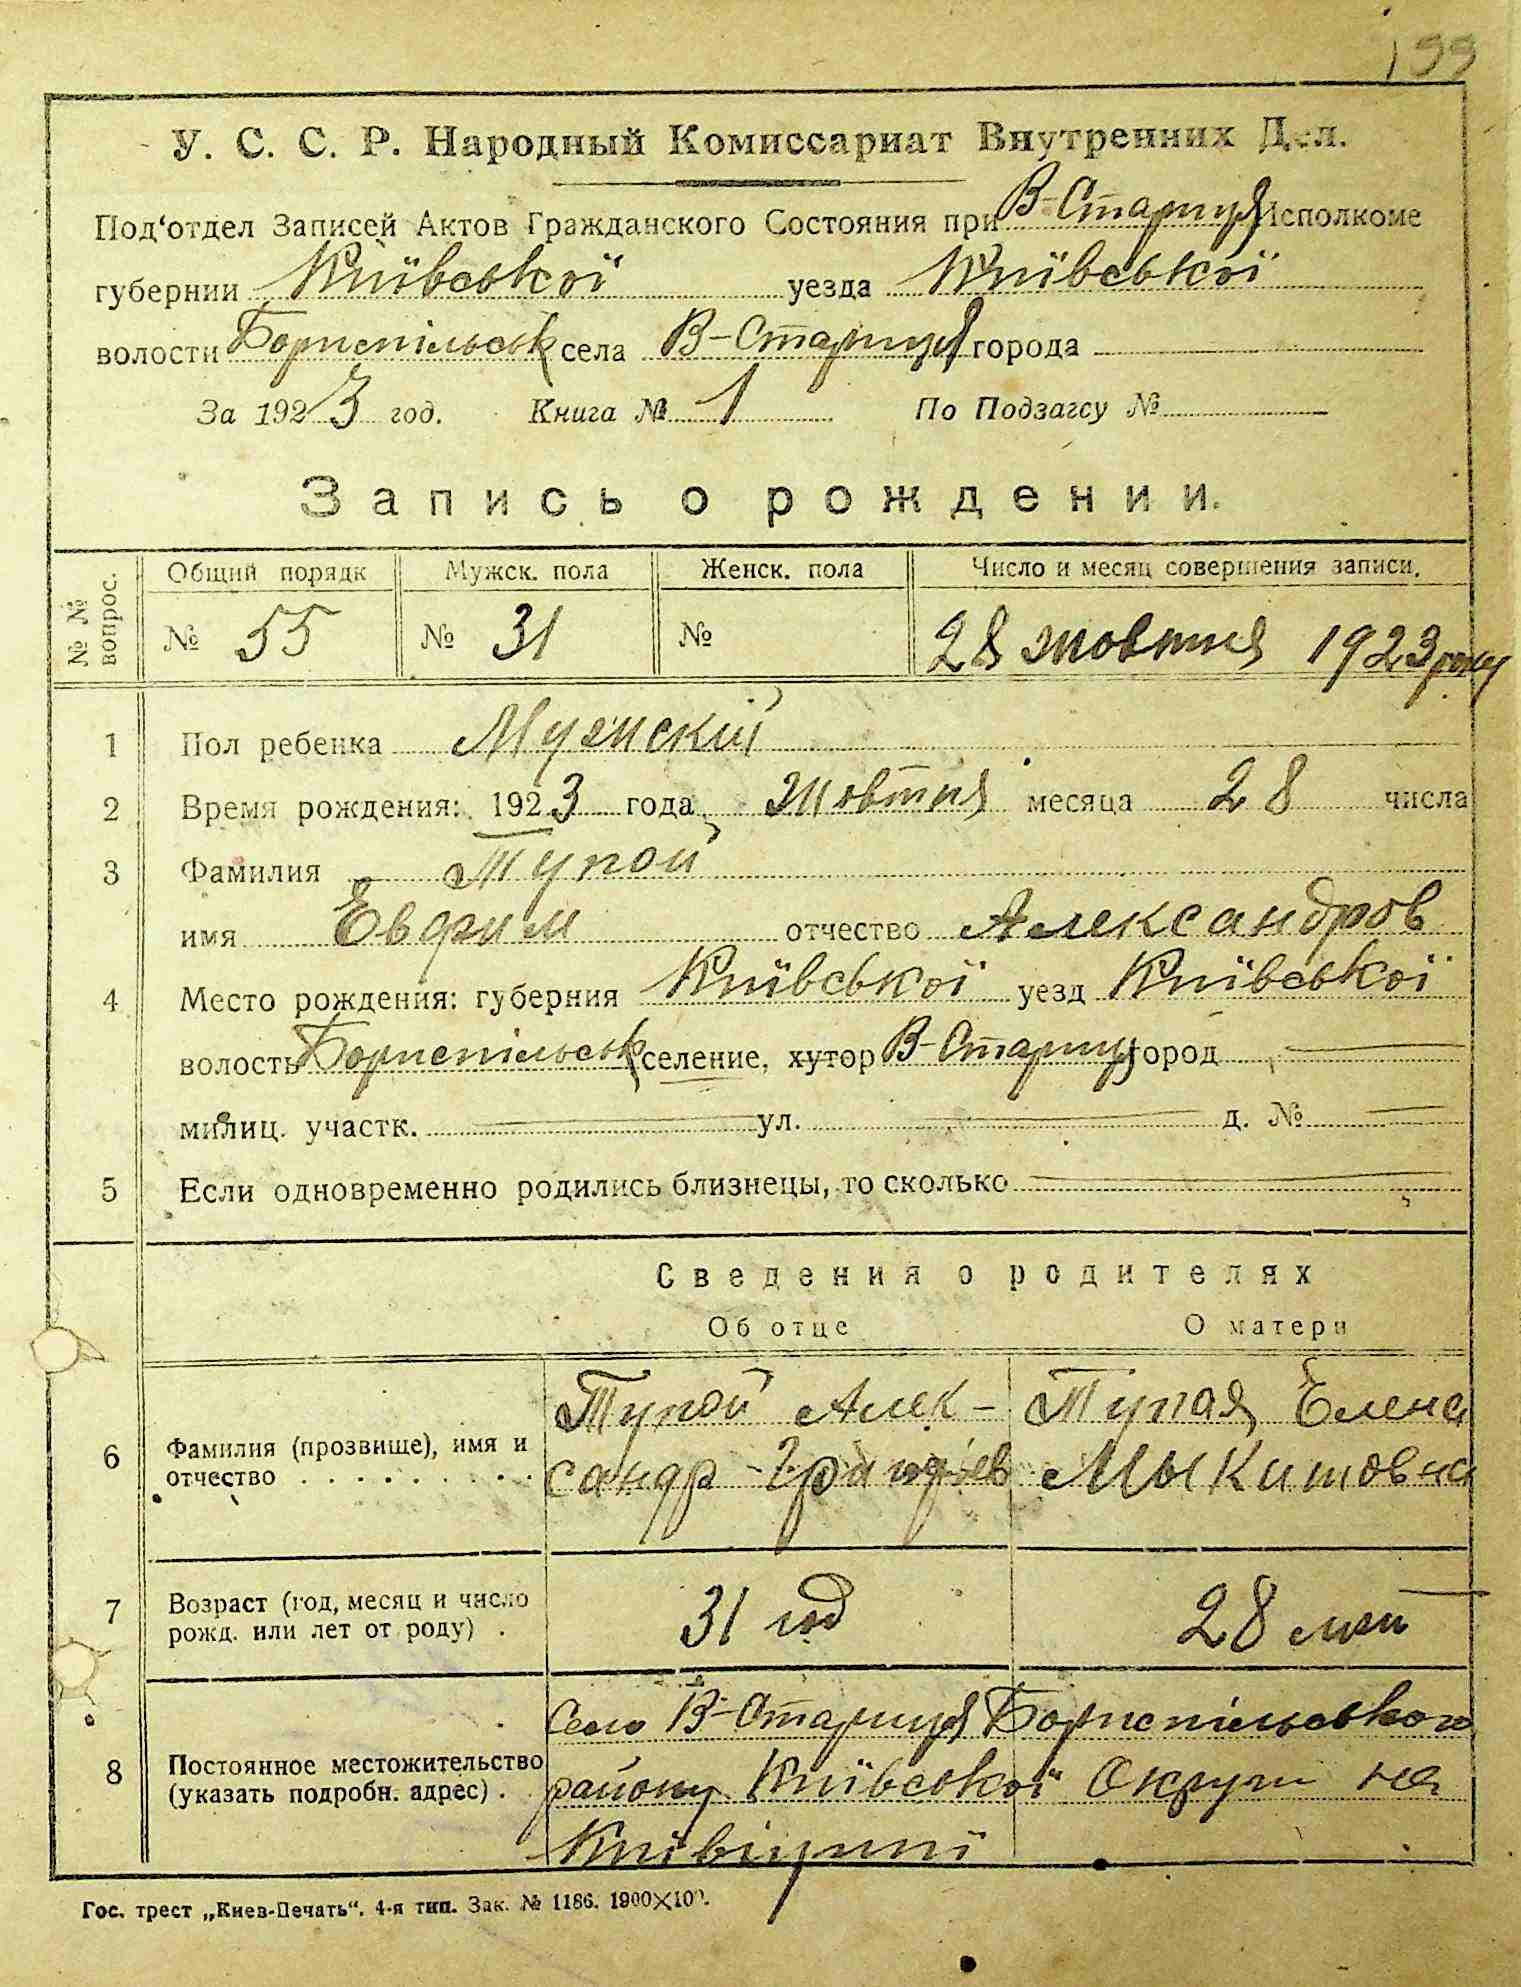 199
У. С. С. Р. Народный Комиссариат Внутренних Дел.
Под‘отдел Записей Актов Гражданского Состояния при В-Стариця Исполкоме
губернии Київської уезда Київської
волости Бориспільськ села В-Стариця города
За 1923 год. Книга № 1 По Подзагсу №
Запись о рождении.
№ № вопрос. Общий порядк Мужск. пола Женск. пола Число и месяц совершения записи.
№ 55 № 31 № 28 жовтня 1923 року
1 Пол ребенка Мужский
2 Время рождения: 1923 года Жовтня месяца 28 числа
3 Фамилия Тупой
имя Евфим отчество Александров
4 Место рождения: губерния Київської уезд Київської
волость Бориспільськ селение, хутор В-Стариця город
милиц. участк. ул. д. №
5 Если одновременно родились близнецы, то сколько
Сведения о родителях
Об отце О матери
Тупой Алек- Тупая Елена
6 Фамилия (прозвище), имя и отчество сандр Григорьев Мыкитовна
7 Возраст (год, месяц и число рожд. или лет от роду) . 31 год 28 лет
Село В-Стариця Бориспільского
8 Постоянное местожительство (указать подробн. адрес) . району Київської Округи на
Київщині
Гос. трест „Киев-Печать“. 4-я тип. Зак. № 1186. 1900×100.